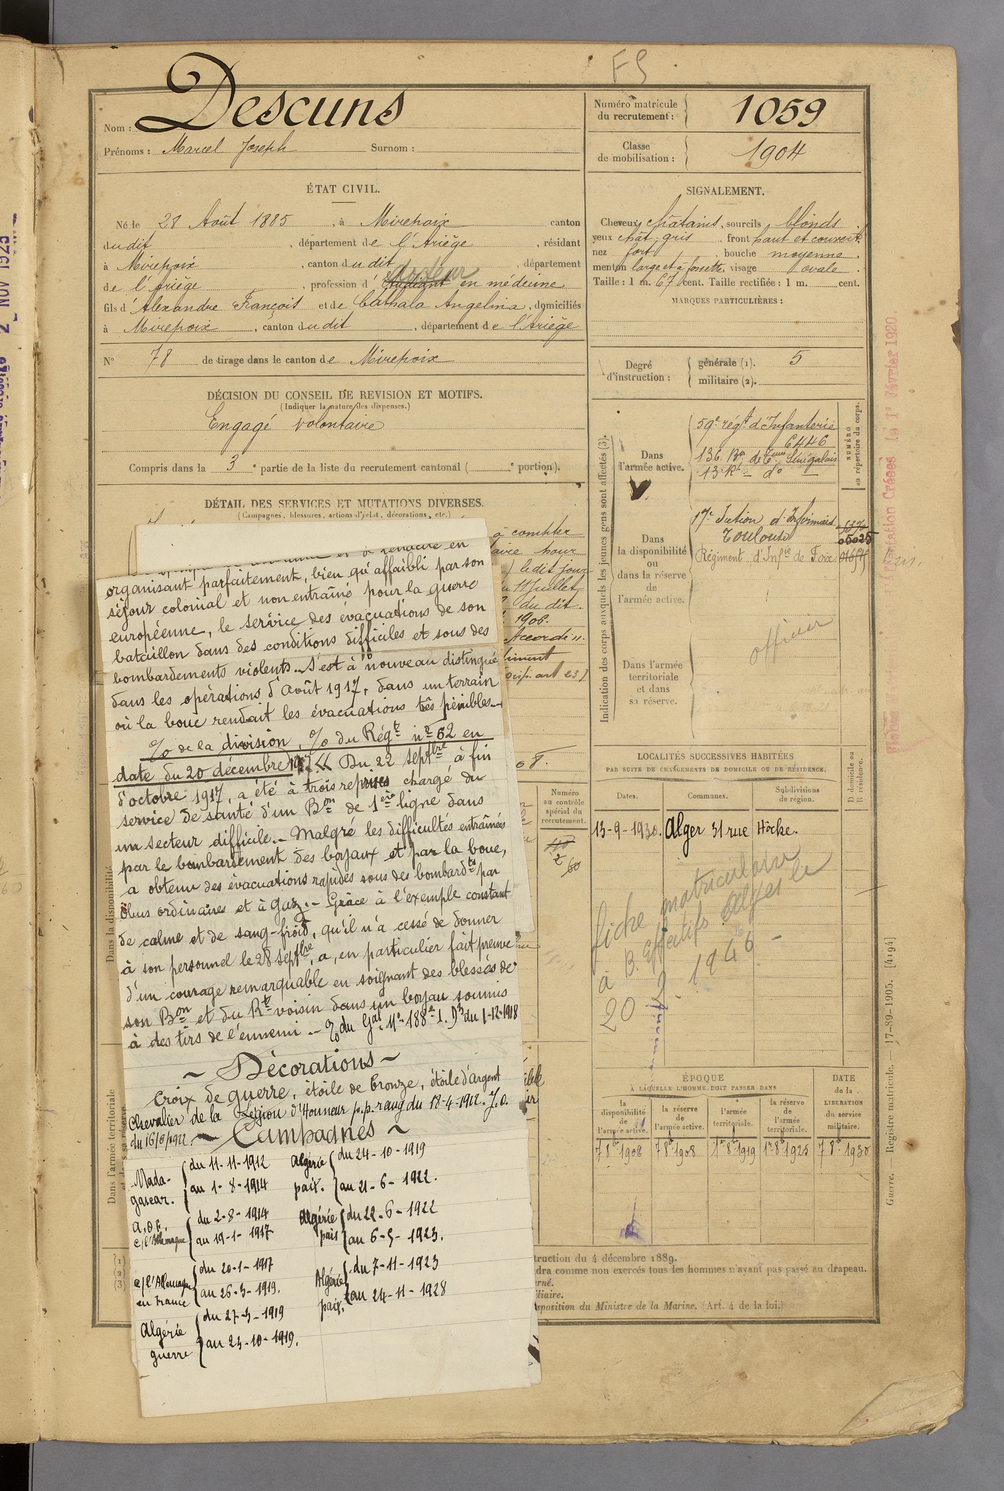 FS
Nom : Descuns
Prénoms : Marcel Joseph Surnom :
Numéro matricule du recrutement : 1059
Classe de mobilisation : 1904
ÉTAT CIVIL.
Né le 28 Août 1885, à Mirepoix canton
dudit, département de l'Ariège, résidant
à Mirepoix, canton dudit, département
Docteur
de l'Ariège, profession d'étudiant en médecine
fils d'Alexandre François et de Cathala Angelina, domiciliés
à Mirepoix, canton dudit, département de l'Ariège
N° 78 de tirage dans le canton de Mirepoix
DÉCISION DU CONSEIL DE REVISION ET MOTIFS.
(Indiquer la nature des dispenses.)
Engagé volontaire
Compris dans la 3e partie de la liste du recrutement cantonal ( e portion).
DÉTAIL DES SERVICES ET MUTATIONS DIVERSES.
(Campagnes, blessures, actions d'éclat, décorations, etc.)
SIGNALEMENT.
Cheveux châtains, sourcils blonds
yeux chât. gris, front haut et couvert
nez fort, bouche moyenne
menton large et à fossette, visage ovale
Taille : 1 m. 67 cent. Taille rectifiée : 1 m. cent.
MARQUES PARTICULIÈRES :
Degré d'instruction : générale (1). 5
militaire (2).
Indication des corps auxquels les jeunes gens sont affectés (3).
NUMÉRO au répertoire du corps.
Dans l'armée active.
59e régt d'Infanterie
6446
136 Bon de Sénégalais
13e Rt do
Dans la disponibilité ou dans la réserve de l'armée active.
17e Section d'Infirmiers
Toulouse
05025
Régiment d'Infie de Foix
officier
Dans l'armée territoriale et dans sa réserve.
LOCALITÉS SUCCESSIVES HABITÉES
PAR SUITE DE CHANGEMENTS DE DOMICILE OU DE RÉSIDENCE.
D domicile ou R résidence.
Dates. Communes. Subdivisions de région.
13-9-1930. Alger 31 rue Hoche.
fiche matriculaire
à B. Effectifs Alger le
20 2 1946
Numéro au contrôle spécial du recrutement.
ÉPOQUE
À LAQUELLE L'HOMME DOIT PASSER DANS
DATE de la LIBÉRATION du service militaire.
la disponibilité de l'armée active.
la réserve de l'armée active.
l'armée territoriale.
la réserve de l'armée territoriale.
7 8bre 1908
7 8bre 1908
1er 8bre 1919
1er 8bre 1925
7 8bre 1930
organisant parfaitement, bien qu'affaibli par son
séjour colonial et non entraîné pour la guerre
européenne, le service des évacuations de son
bataillon dans des conditions difficiles et sous des
bombardements violents.. S'est à nouveau distingué
dans les opérations d'Août 1917, dans un terrain
où la boue rendait les évacuations très pénibles.-
% de la division, % du Régt n° 62 en
date du 20 décembre 1917 « Du 22 septbre à fin
d'octobre 1917, a été à trois reprises chargé du
service de santé d'un Bon de 1ère ligne dans
un secteur difficile.- Malgré les difficultés entraînées
par le bombardement des boyaux et par la boue,
a obtenu des évacuations rapides sous des bombardts par
obus ordinaires et à gaz.- Grâce à l'exemple constant
de calme et de sang-froid, qu'il n'a cessé de donner
à son personnel le 28 septbre, a, en particulier fait preuve
d'un courage remarquable en soignant des blessés de
son Bon et du Rt voisin dans un boyau soumis
à des tirs de l'ennemi.- % du Gal n° 188 du 1-12-1918
~ Décorations ~
Croix de guerre, étoile de bronze, étoile d'argent
Chevalier de la Légion d'Honneur p.p. rang du 18-4-1922. J.O.
~ Campagnes ~
Madagascar. du 11-11-1912
au 1-8-1914
A.O.F. c/l'Allemagne du 2-8-1914
au 19-1-1917
c/l'Allemagne en France du 20-1-1917
au 26-3-1919.
Algérie guerre du 27-3-1919
au 23-10-1919.
Algérie paix. du 24-10-1919
au 21-6-1922.
Algérie paix du 22-6-1922
au 6-5-1923.
Algérie paix. du 7-11-1923
au 24-11-1928
Dans l'armée territoriale
truction du 4 décembre 1889.
dra comme non exercés tous les hommes n'ayant pas passé au drapeau.
sposition du Ministre de la Marine. (Art. 4 de la loi.)
Guerre. — Registre matricule. — 17-89-1905. [4194]
2 NOV 1925